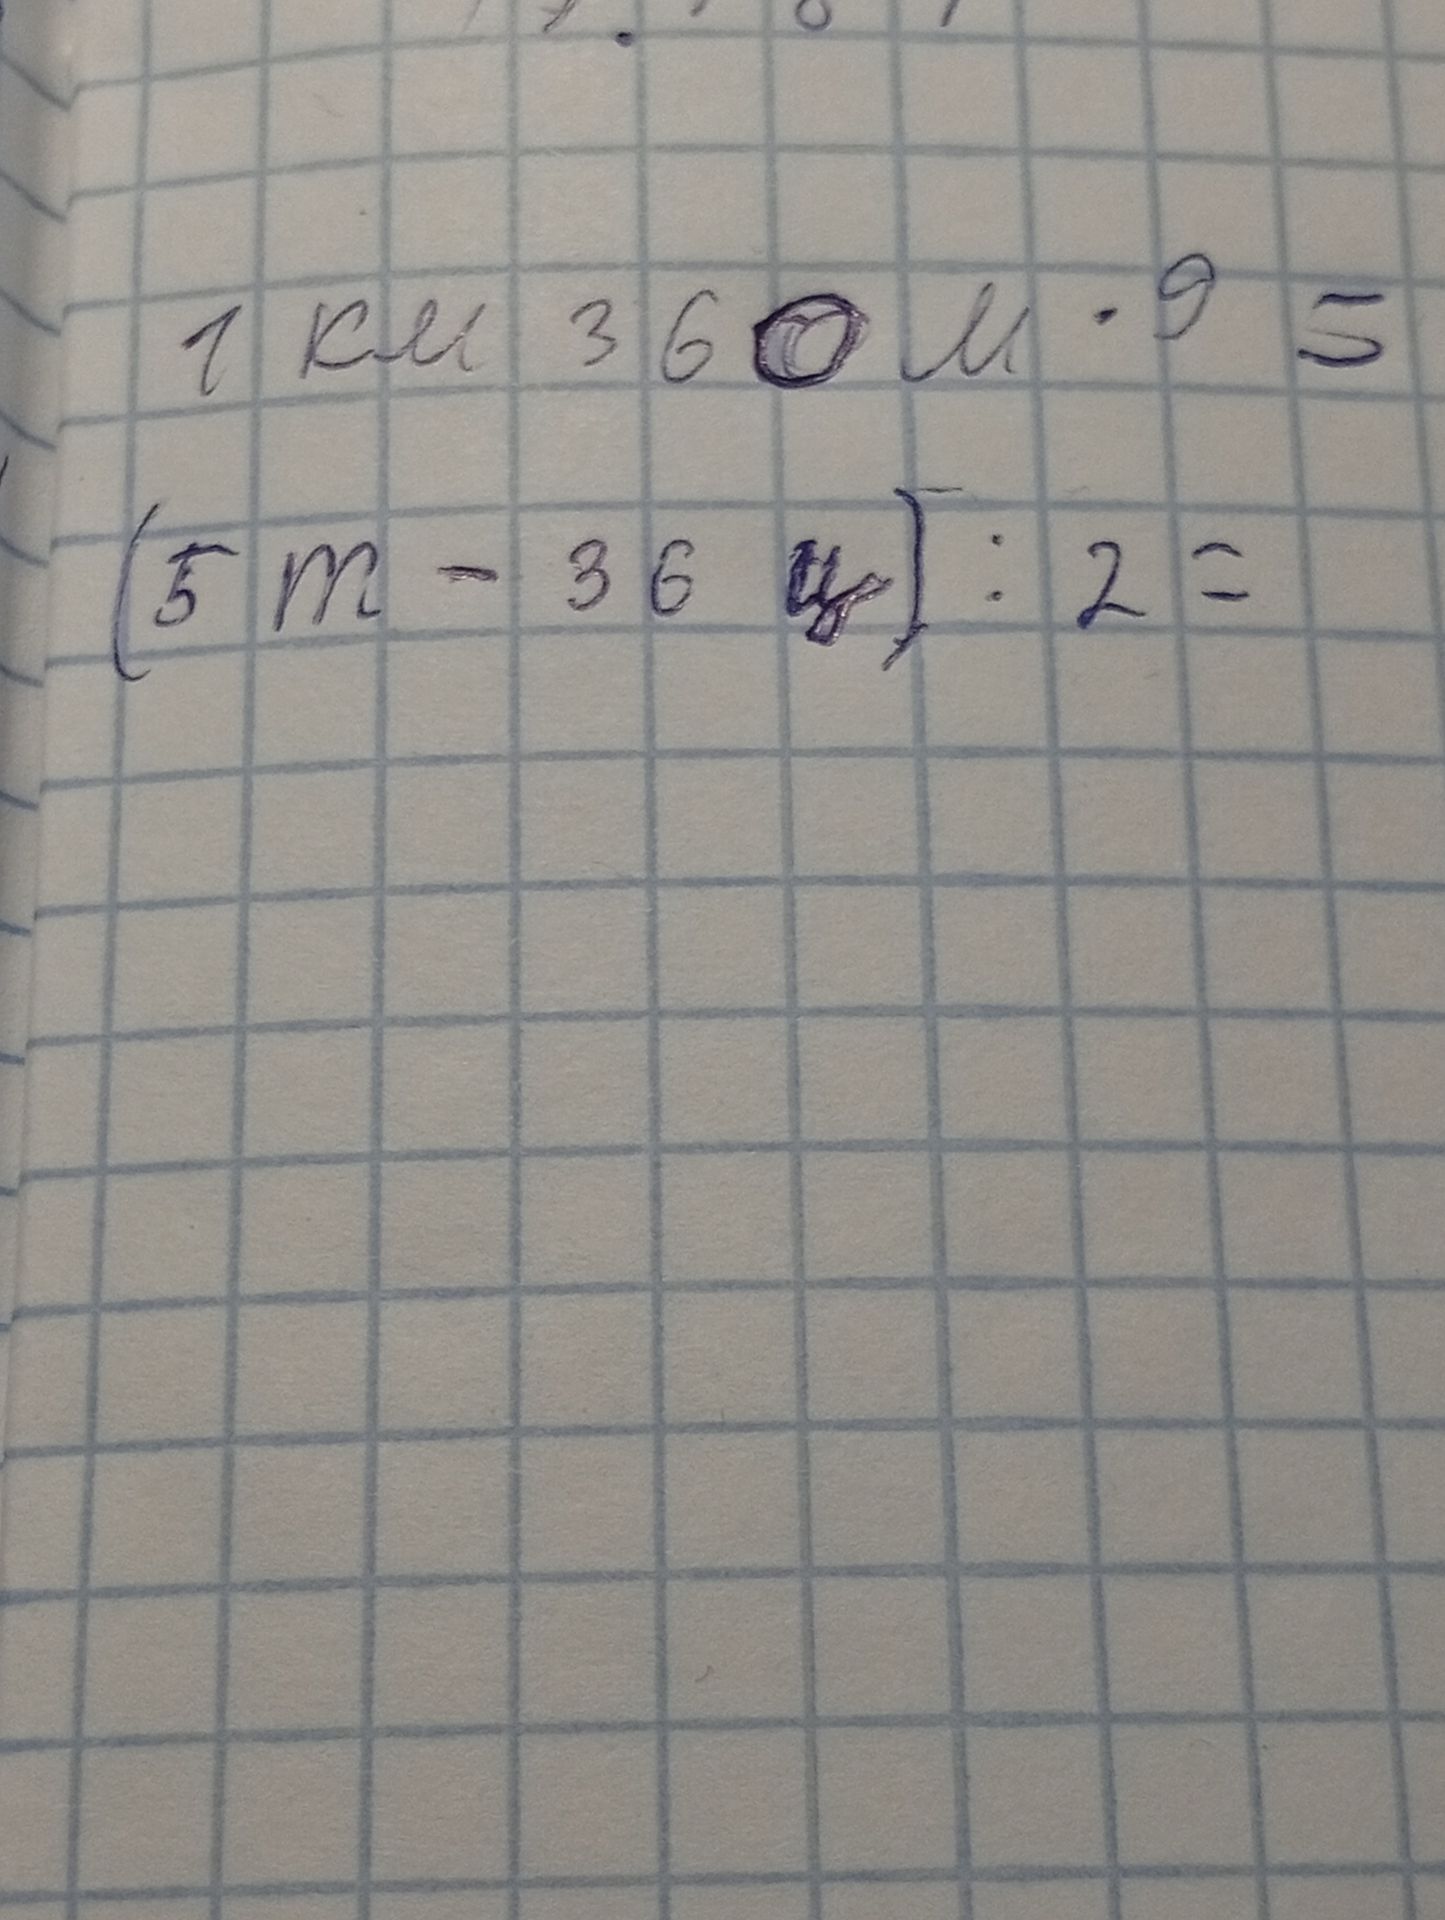 1 км 360 м · 9 =
(5 т - 36 ц) : 2 =